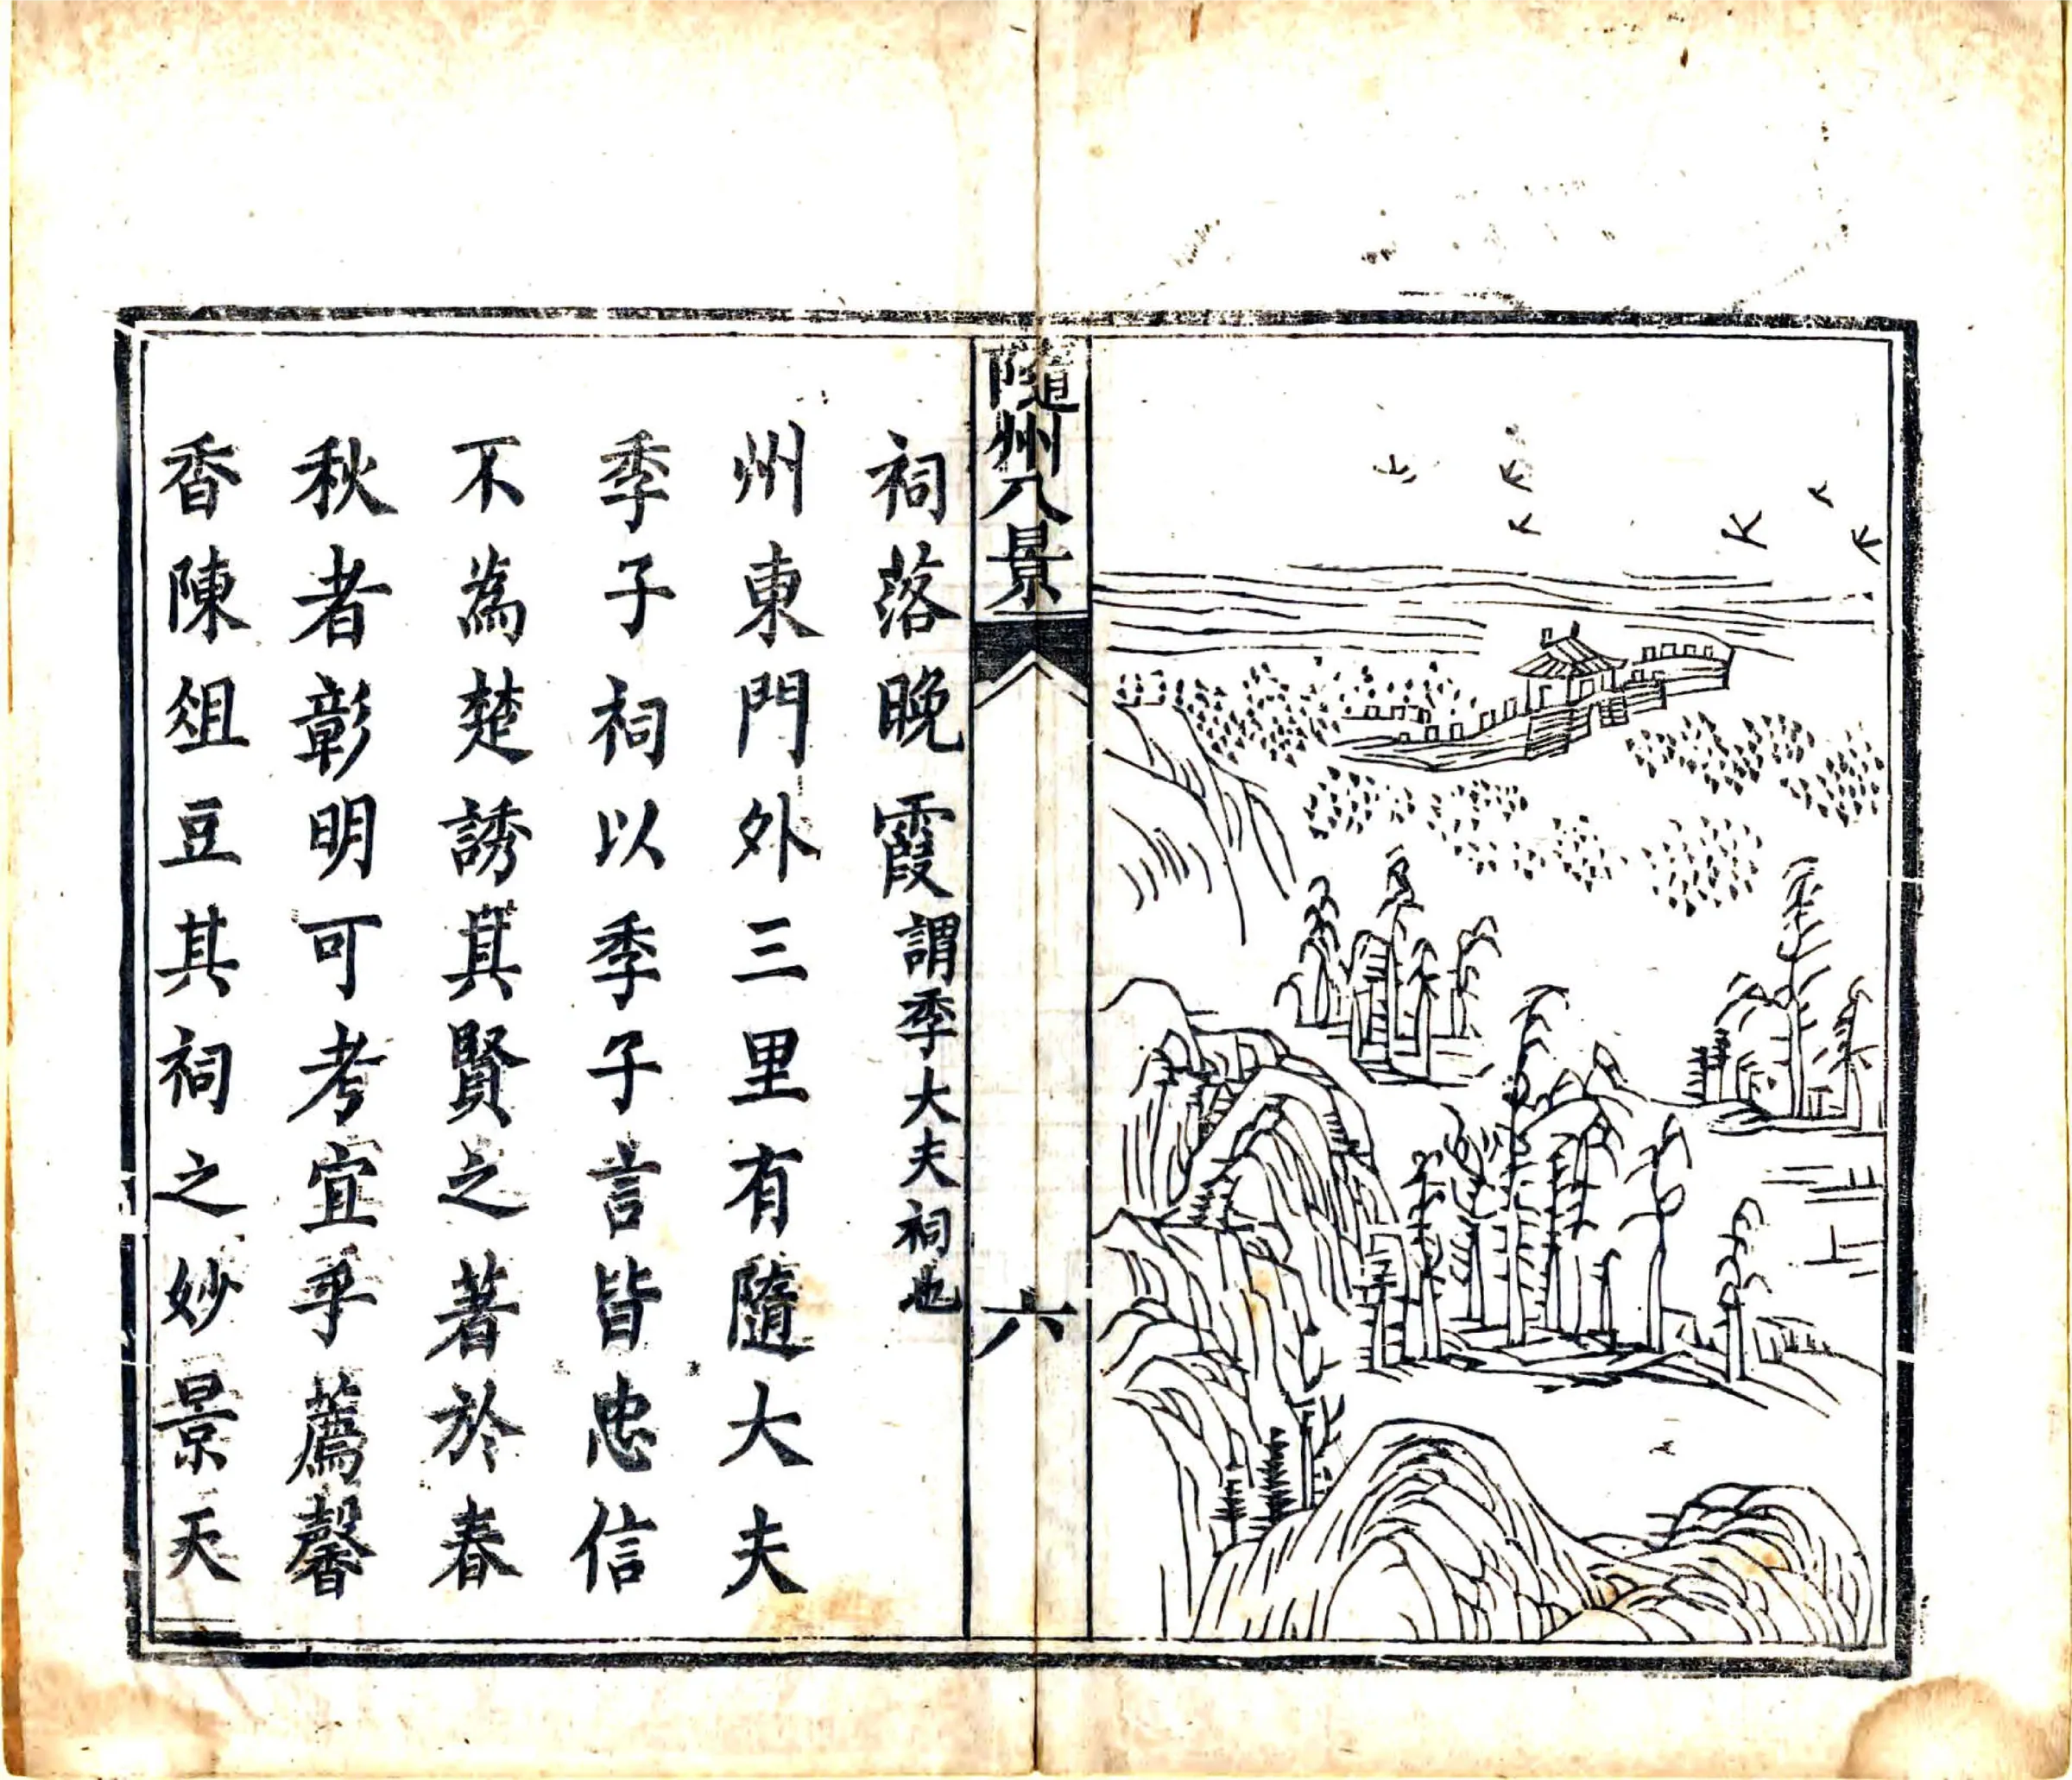 隨州八景
六
祠落晚霞謂季大夫祠也
州東門外三里有隨大夫
季子祠以季子言皆忠信
不為楚誘其賢之著於春
秋者彰明可考宜乎薦馨
香陳俎豆其祠之妙景天